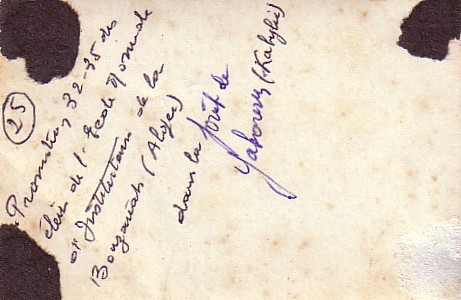 25
Promotion 32-35 des
élèves de l'Ecole Normale
d'Instituteurs de la
Bouzaréah (Alger)
dans la forêt de
Yakouren (Kabylie)